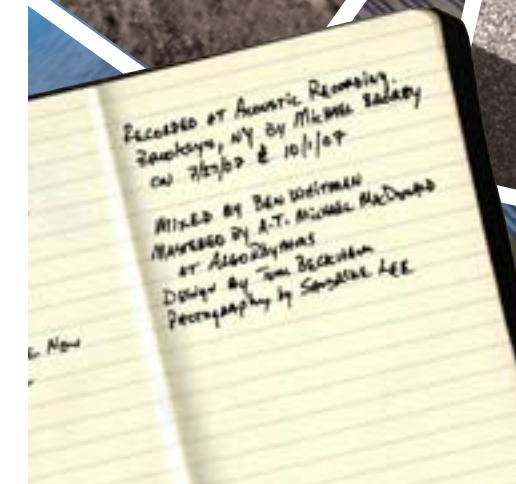 Recorded at Acoustic Recording.
Brooklyn, NY by Michael
on 7/27/07 & 10/1/07
Mixed by Ben Wittman
Mastered by A.T. Michael MacDonald
at AlgoRhythms
Design by Tom Beckham
Photography by Sandrine Lee
Now